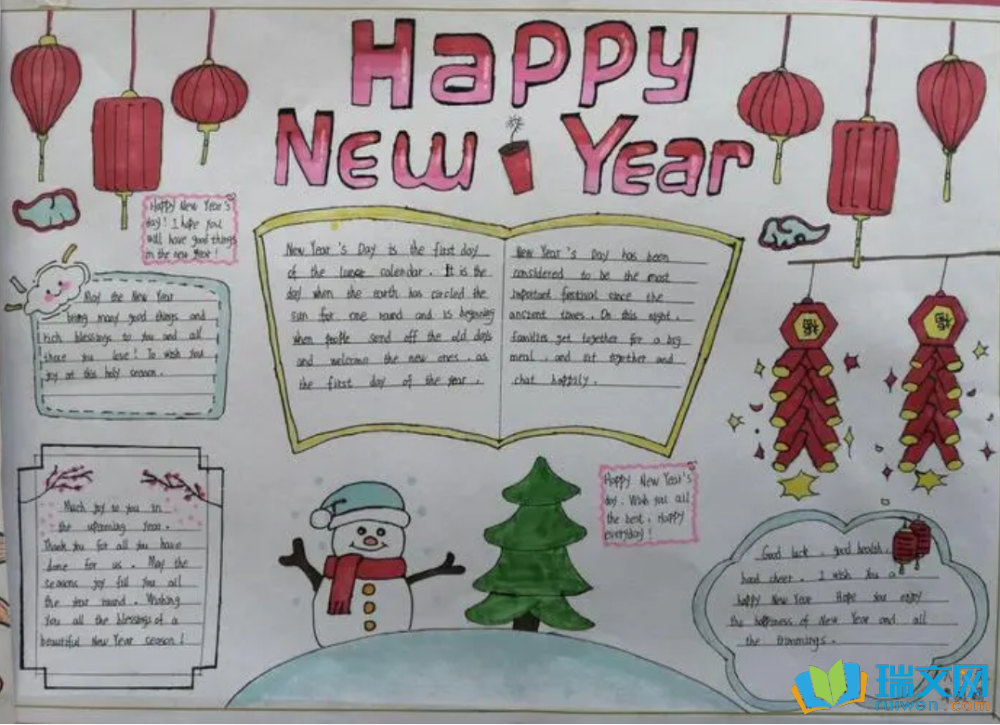 Happy
New Year
Happy New Year's
day! I hope you
will have good things
in the new year!
May the New Year
bring many good things and
rich blessings to you and all
those you love! To wish you
joy at this holy season.
New Year's Day is the first day
of the lunar calendar. It is the
day when the earth has circled the
sun for one round and is beginning
when people send off the old days
and welcome the new ones, as
the first day of the year.
New Year's Day has been
considered to be the most
important festival since the
ancient times. On this night,
families get together for a big
meal, and sit together and
chat happily.
福
福
Much joy to you in
the upcoming year.
Thank you for all you have
done for us. May the
seasons joy fill you all
the year round. Wishing
You all the blessings of a
beautiful New Year season!
Happy New Year's
day. Wish you all
the best. Happy
everyday!
Good luck, good health,
hood cheer. I wish you a
happy New Year. Hope you enjoy
the happiness of New Year and all
the trimmings.
瑞文网
ruiwen.com